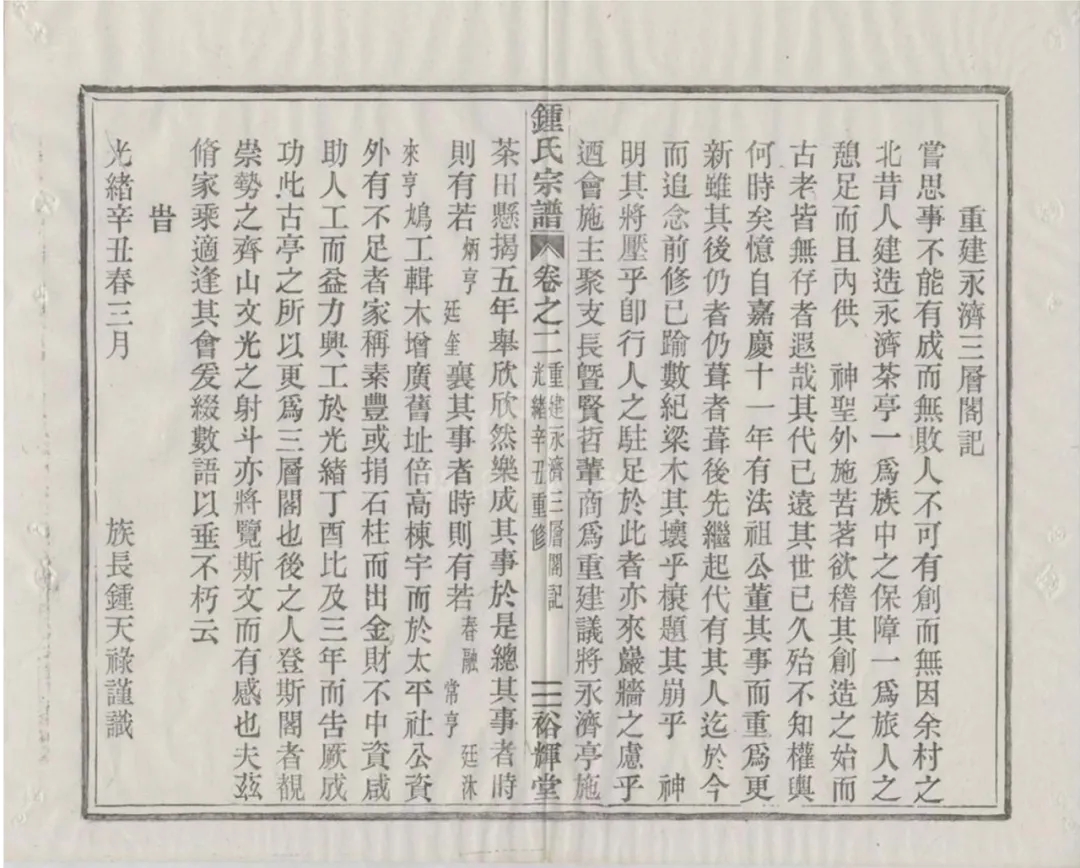 重建永濟三層閣記
嘗思事不能有成而無敗人不可有創而無因余村之
北昔人建造永濟茶亭一爲族中之保障一爲旅人之
憩足而且內供　神聖外施苦茗欲稽其創造之始而
古老皆無存者遐哉其代已遠其世已久殆不知權輿
何時矣憶自嘉慶十一年有法祖公董其事而重爲更
新雖其後仍者仍葺者葺後先繼起代有其人迄於今
而追念前修已踰數紀梁木其壞乎榱題其崩乎　神
明其將壓乎卽行人之駐足於此者亦來巖牆之慮乎
迺會施主聚支長暨賢哲輩商爲重建議將永濟亭施
鍾氏宗譜　卷之二　重建永濟三層閣記　光緒辛丑重修　三　裕輝堂
茶田懸揭五年舉欣欣然樂成其事於是總其事者時
則有若炳亨　廷奎襄其事者時則有若春融　常亨　廷沐
來亨鳩工輯木增廣舊址倍高棟宇而於太平社公資
外有不足者家稱素豐或捐石柱而出金財不中資咸
助人工而益力興工於光緒丁酉比及三年而告厥成
功此古亭之所以更爲三層閣也後之人登斯閣者覩
崇勢之齊山文光之射斗亦將覽斯文而有感也夫茲
脩家乘適逢其會爰綴數語以垂不朽云
旹
光緒辛丑春三月　族長鍾天祿謹識